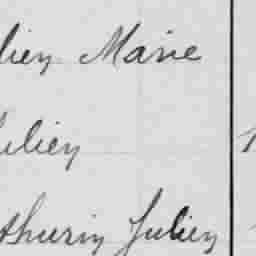 lien Marie
Julien
thurin Julien